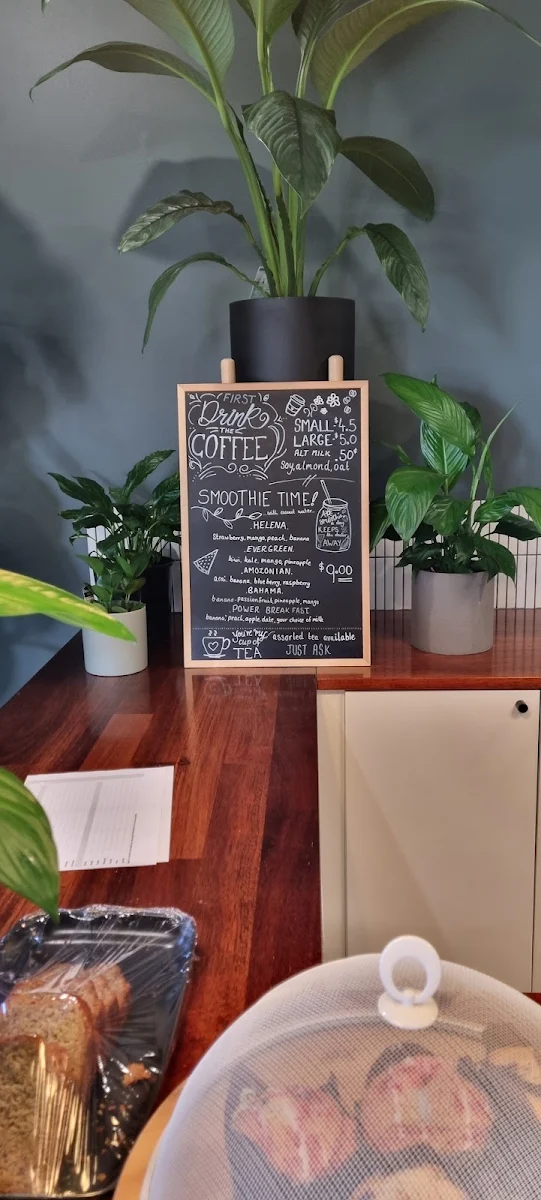 FIRST
Drink
THE
COFFEE
SMALL $4.5
LARGE $5.0
ALT MILK .50¢
Soy, almond, oat
SMOOTHIE TIME!
with coconut water.
.HELENA.
Strawberry, mango, peach, banana
.EVERGREEN.
kiwi, kale, mango, pineapple
.AMOZONIAN.
acai, banana, blueberry, raspberry
.BAHAMA.
banana, passionfruit, pineapple, mango
POWER BREAKFAST.
banana, peach, apple, date, your choice of milk
KEEPS
AWAY
$9.00
you're my
cup of
TEA
assorted tea available
JUST ASK